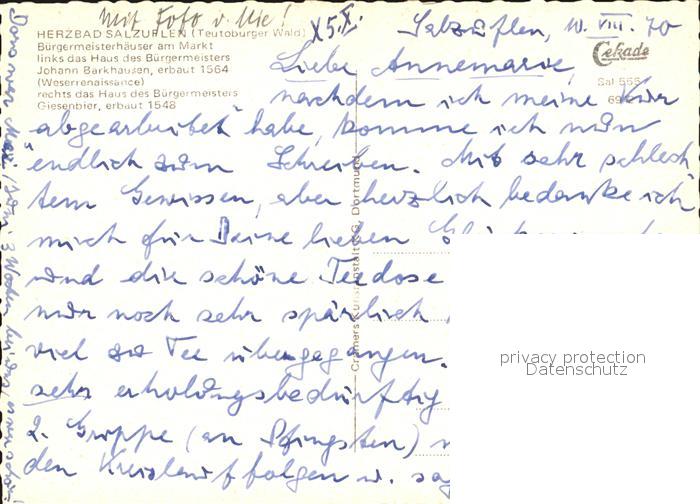 Mit Foto v. Mie!
X5.X.
HERZBAD SALZUFLEN (Teutoburger Wald)
Bürgermeisterhäuser am Markt
links das Haus des Bürgermeisters
Johann Barkhausen, erbaut 1564
(Weserrenaissance)
rechts das Haus des Bürgermeisters
Giesenbier, erbaut 1548
Cekade
Sal 555
Salzuflen, 10. VIII. 70
Liebe Annemarie,
nachdem ich meine Kur
"abgearbeitet" habe, komme ich nun
endlich zum Schreiben. Mit sehr schlech
tem Gewissen, aber herzlich bedanke ich
mich für Deine lieben
und die schöne Teedose
nur noch sehr spärlich
viel zu Tee übergegangen.
sehr erholungsbedürftig
2. Grippe (an Pfingsten)
den Kreislauf folgen u.
Cramers Kunstanstalt KG, Dortmund
privacy protection
Datenschutz
3 Wochen